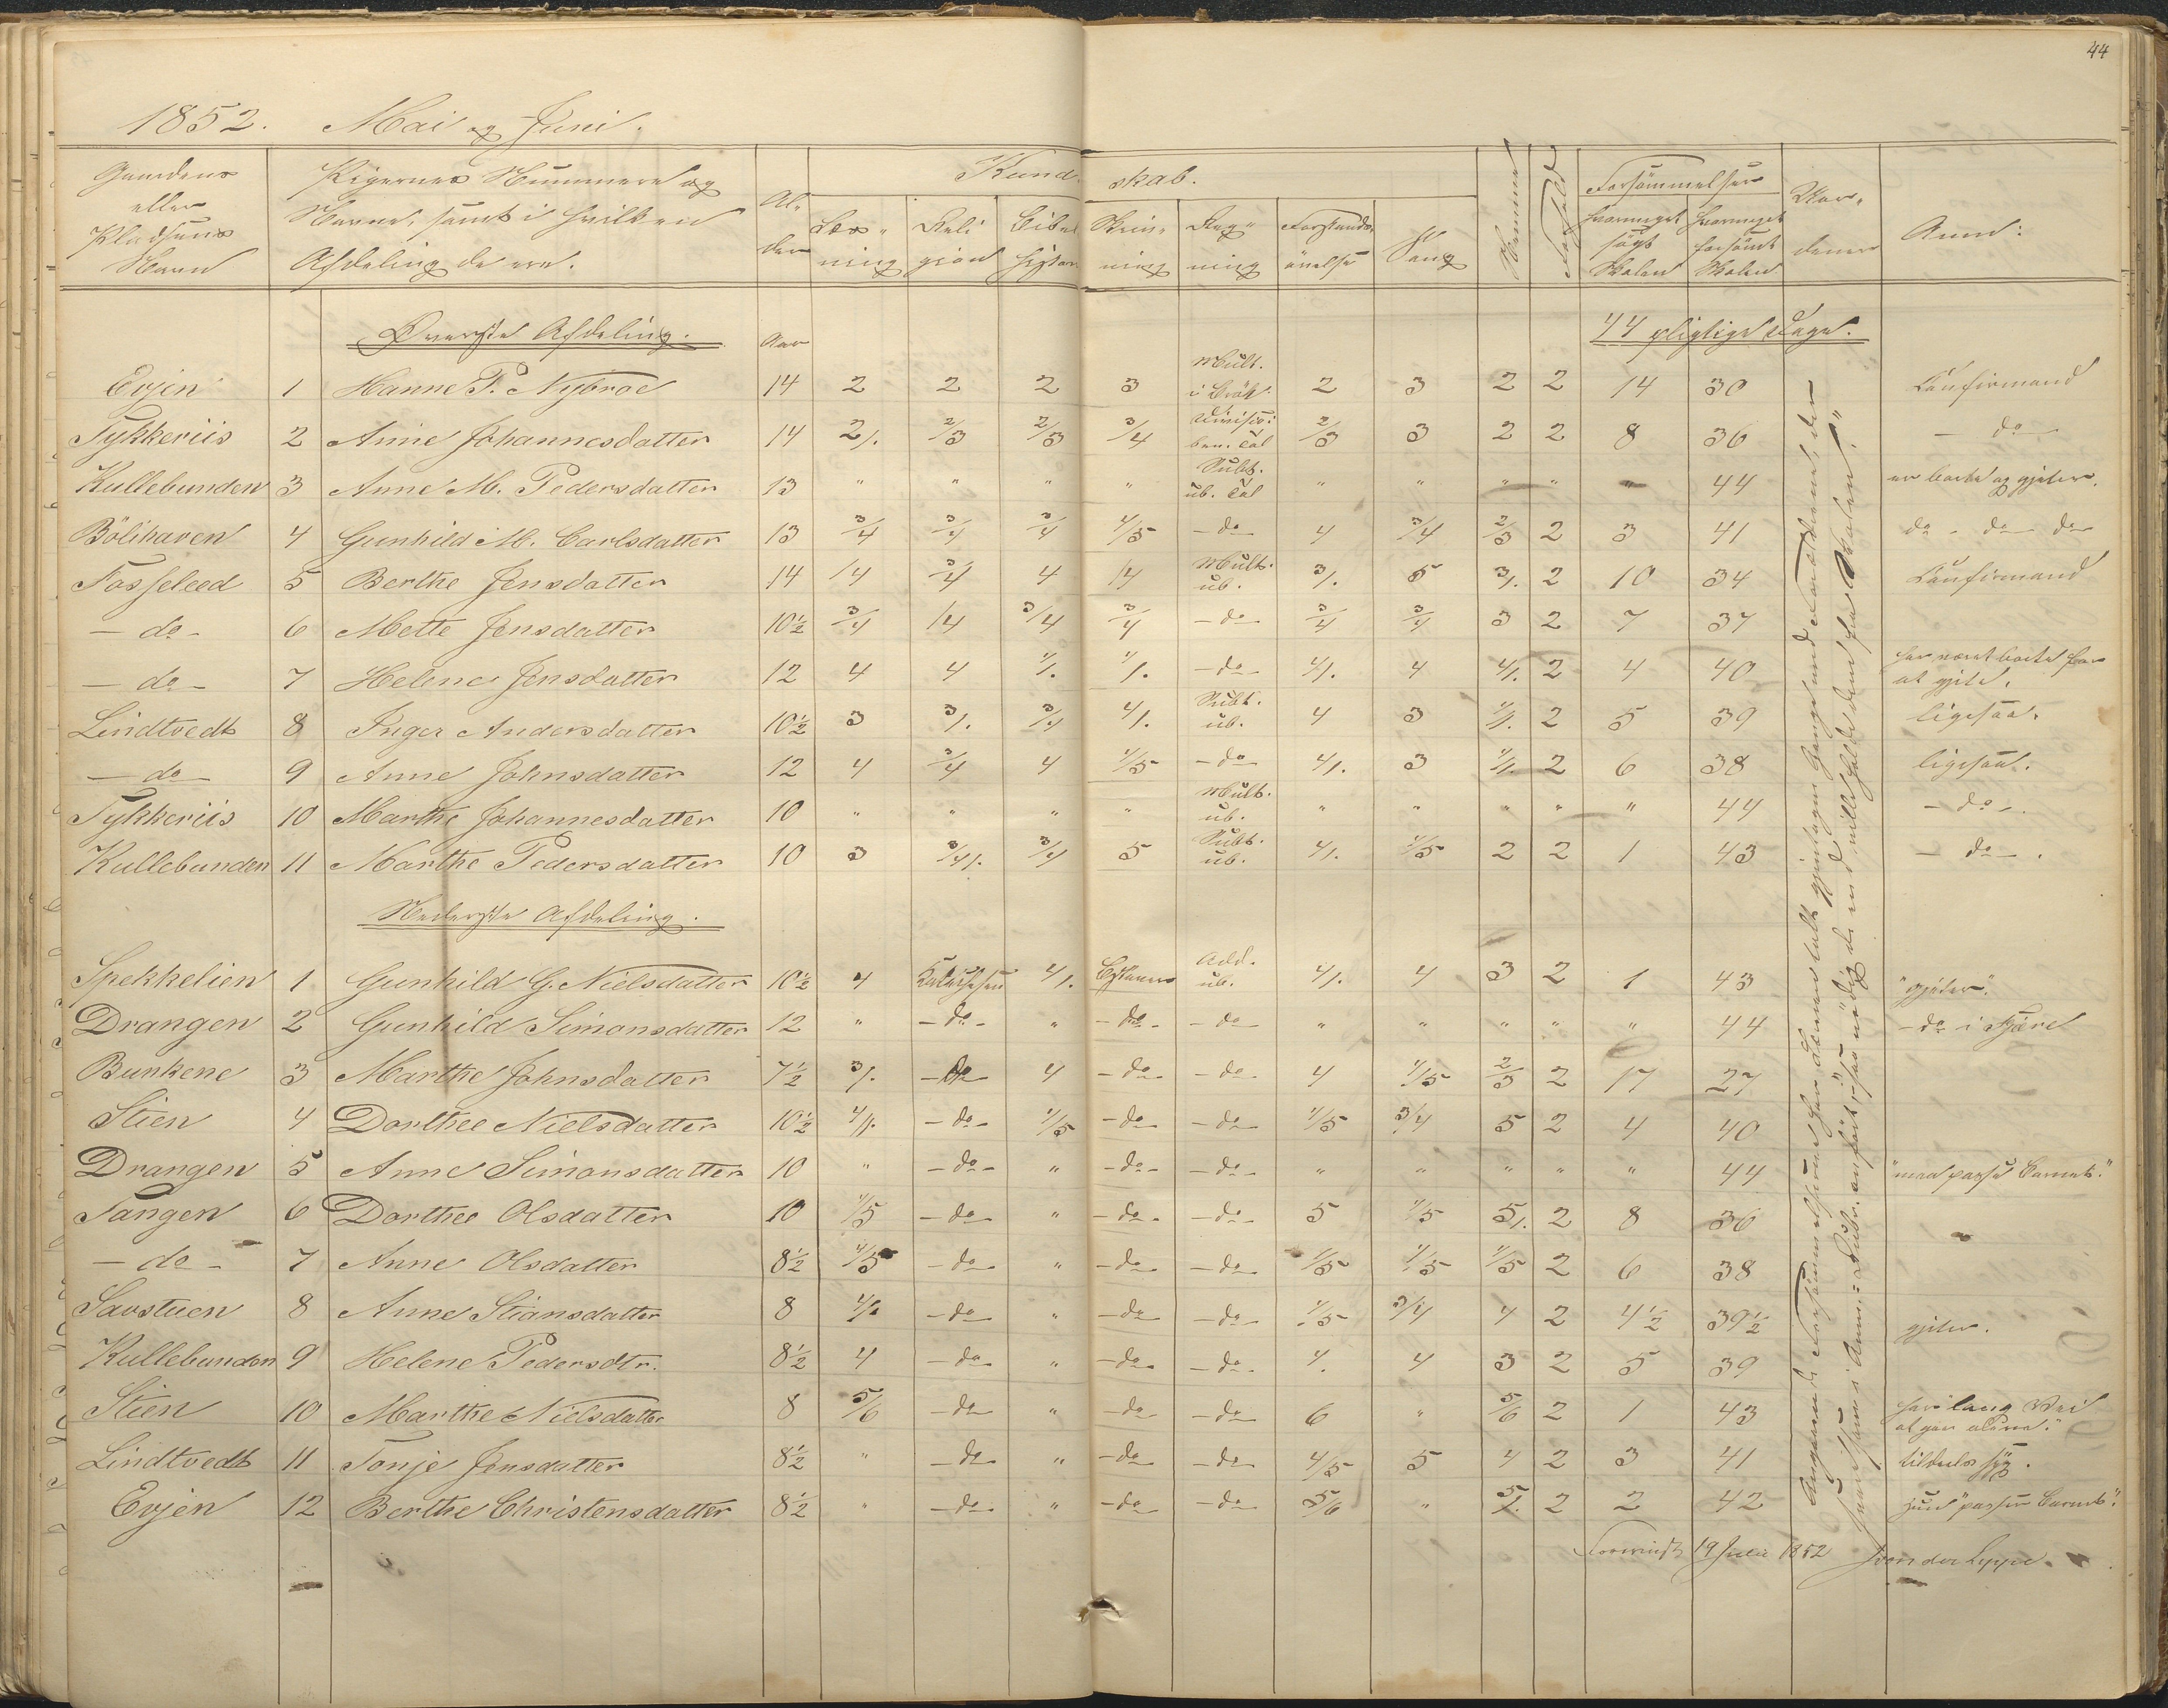 44
1852. Mai og Juni.
Gaardens eller Pladsens Navn
Pigernes Nummere og Navne, samt i hvilken Afdeling de ere.
Alder
Kundskab.
Læsning
Religion
Bibelhistor.
Skrivning
Regning
Forstandsøvelse
Sang
Nemme
Forhold
Forsømmelser
hvormeget søgt Skolen
hvormeget forsømt Skolen
Anm:
Øverste Afdeling. Aar 44 pligtige Dage.
Evjen 1 Hanne P. Nybroe 14 2 2 2 3 Mult. i Brök. 2 3 2 2 14 30 Confirmand
Tykkeriis 2 Anne Johannesdatter 14 2/. 2/3 2/3 3/4 Division: ben. Tal 2/3 3 2 2 8 36 - do -
Kullebunden 3 Anne M. Pedersdatter 13 " " " " Subt. ub. Tal " " " " - 44 er borte og gjeter.
Bölihaven 4 Gunhild M. Carlsdatter 13 3/4 3/4 3/4 4/5 - do - 4 3/4 2/3 2 3 41 do - do - do
Fosseleed 5 Berthe Jensdatter 14 /4 3/4 4 /4 Mult. ub. 3/. 5 3/. 2 10 34 Confirmand
- do - 6 Mette Jensdatter 10½ 3/4 /4 3/4 3/4 - do - 3/4 3/4 3 2 7 37
- do - 7 Helene Jensdatter 12 4 4 4/. 4/. - do - 4/. 4 4/. 2 4 40 har været borte for at gjete.
Lindtvedt 8 Inger Andersdatter 10½ 3 3/. 3/4 4/. Subt. ub. 4 3 4/. 2 5 39 ligesaa.
- do - 9 Anne Johnsdatter 12 4 3/4 4 4/5 - do - 4/. 3 4/. 2 6 38 ligesaa.
Tykkeriis 10 Marthe Johannesdatter 10 " " " " Mult. ub. " " " " " 44 - do -.
Kullebunden 11 Marthe Pedersdatter 10 3 3/4/. 3/4 5 Subt. ub. 4/. 4/5 2 2 1 43 - do -.
Nederste Afdeling.
Spekkelien 1 Gunhild G. Nielsdatter 10½ 4 4/. Add. ub. 4/. 4 3 2 1 43 "gjeter".
Drangen 2 Gunhild Simonsdatter 12 " - do - " - do - - do - " " " " " 44 - do i Fjære
Bunkene 3 Marthe Johnsdatter 7½ 3/. - do - 4 - do - - do - 4 4/5 2/3 2 17 27
Stien 4 Dorthee Nielsdatter 10½ 4/. - do - 4/5 - do - - do - 4/5 3/4 5 2 4 40
Drangen 5 Anne Simonsdatter 10 " - do - " - do - - do - " " " " " 44 "maa passe Barnet."
Tangen 6 Dorthee Olsdatter 10 4/5 - do - " - do - - do - 5 4/5 5/. 2 8 36
- do - 7 Anne Olsdatter 8½ 4/5 - do - " - do - - do - 4/5 4/5 4/5 2 6 38
Savstuen 8 Anne Stiansdatter 8 4/. - do - " - do - - do - 4/5 3/4 4 2 4½ 39½ gjeter.
Kullebunden 9 Helene Pedersdtr. 8½ 4 - do - " - do - - do - 4. 4 3 2 5 39
Stien 10 Marthe Nielsdatter 8 5/6 - do - " - do - - do - 6 " 5/6 2 1 43 har lang Vei at gaa alene."
Lindtvedt 11 Tonje Jensdatter 8½ " - do - " - do - - do - 4/5 5 4 2 3 41 tildeels syg.
Evjen 12 Berthe Christensdatter 8½ " - do - " - do - - do - 5/6 " 5/. 2 2 42 "passer Barnet".
Foreviist 19 Juli 1852 von der Lippe.